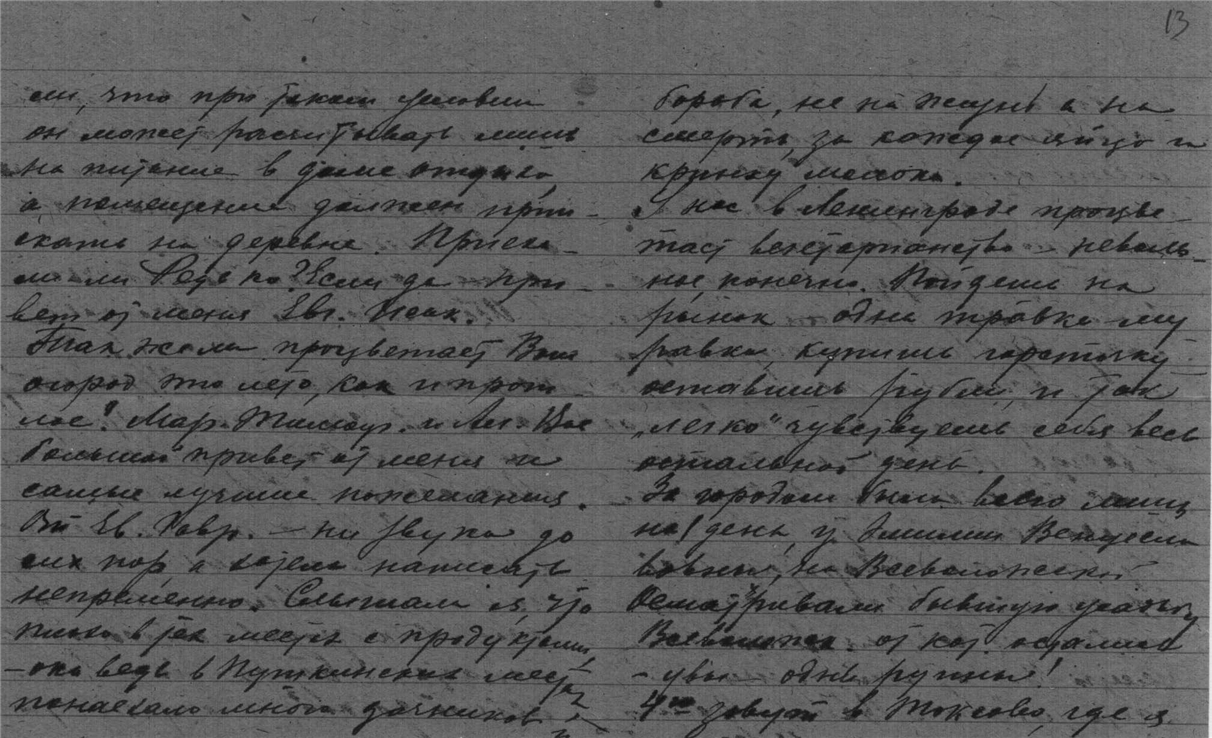 13
ли, что при таком условии
он может расчитывать лишь
на питание в доме отдыха,
а помещение должен прии-
скать на деревне. Приеха-
ла ли Редько? Если да – при-
вет от меня Евг. Исак.
Так же ли процветает Ваш
огород это лето, как и прош-
лое? Мар. Тимоф. и Ал. Вас
большой привет от меня и
самые лучшие пожелания.
От Ев. Лавр. – ни звука до
сих пор, а хотела написать
непременно. Слышала я, что
плохо в тех местах с продуктами,
– она ведь в Пушкинских местах,
понаехало много дачников
борьба, не на жизнь а на
смерть, за каждое яйцо и
кринку молока.
У нас в Ленинграде процве-
тает вегетарианство – неволь-
ное, конечно. Пойдешь на
рынок – одна травка-му
равка, купишь горсточку
оставишь рубли, и так
„легко" чувствуешь себя весь
остальной день.
За городом была всего лишь
на 1 день, у Эмилии Венцесла
вовны, на Всеволожской
Осматривали бывшую усадьбу
Всеволожск. от кот. остались
– увы – одне руины!
4го зовут в Токсово, где я